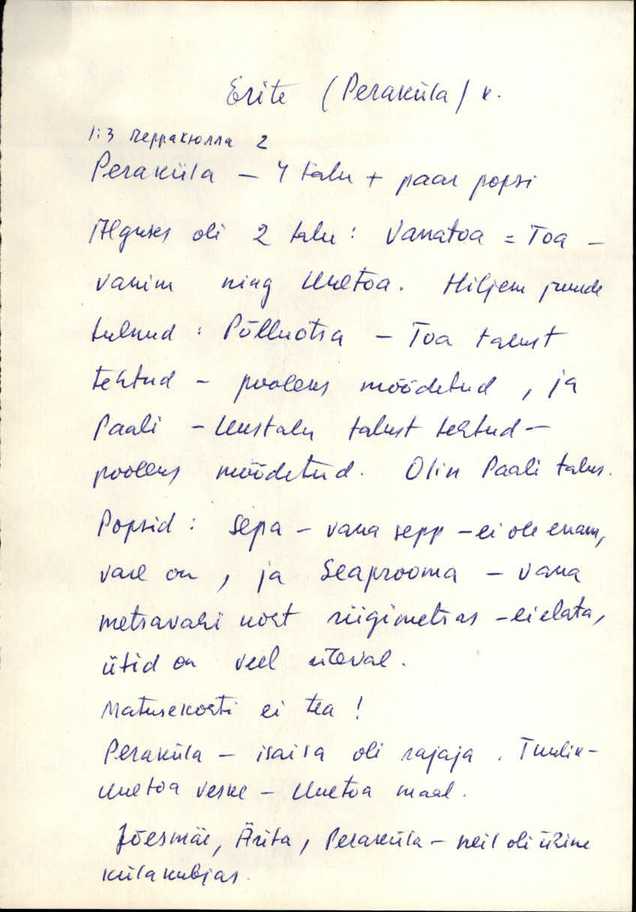 Erite (Peraküla) k.
1:3 Перракюлла 2
Peraküla – 4 talu + paar popsi
Alguses oli 2 talu: Vanatoa = Toa –
vanim ning Uuetoa. Hiljem juurde
tulnud: Põlluotsa – Toa talust
tehtud – pooleks mõõdetud, ja
Paali – Uustalu talust tehtud –
pooleks mõõdetud. Olin Paali talus.
Popsid: Sepa – vana sepp – ei ole enam,
vare on, ja Seaprooma – vana
metsavahi koht riigimetsas – ei elata,
ütid on veel üleval.
Matusekohti ei tea!
Peraküla – isaisa oli rajaja. Tuulik–
Uuetoa veske – Uuetoa maal.
Jõesmäe, Ärita, Peraküla – neil oli ühine
külakubjas.